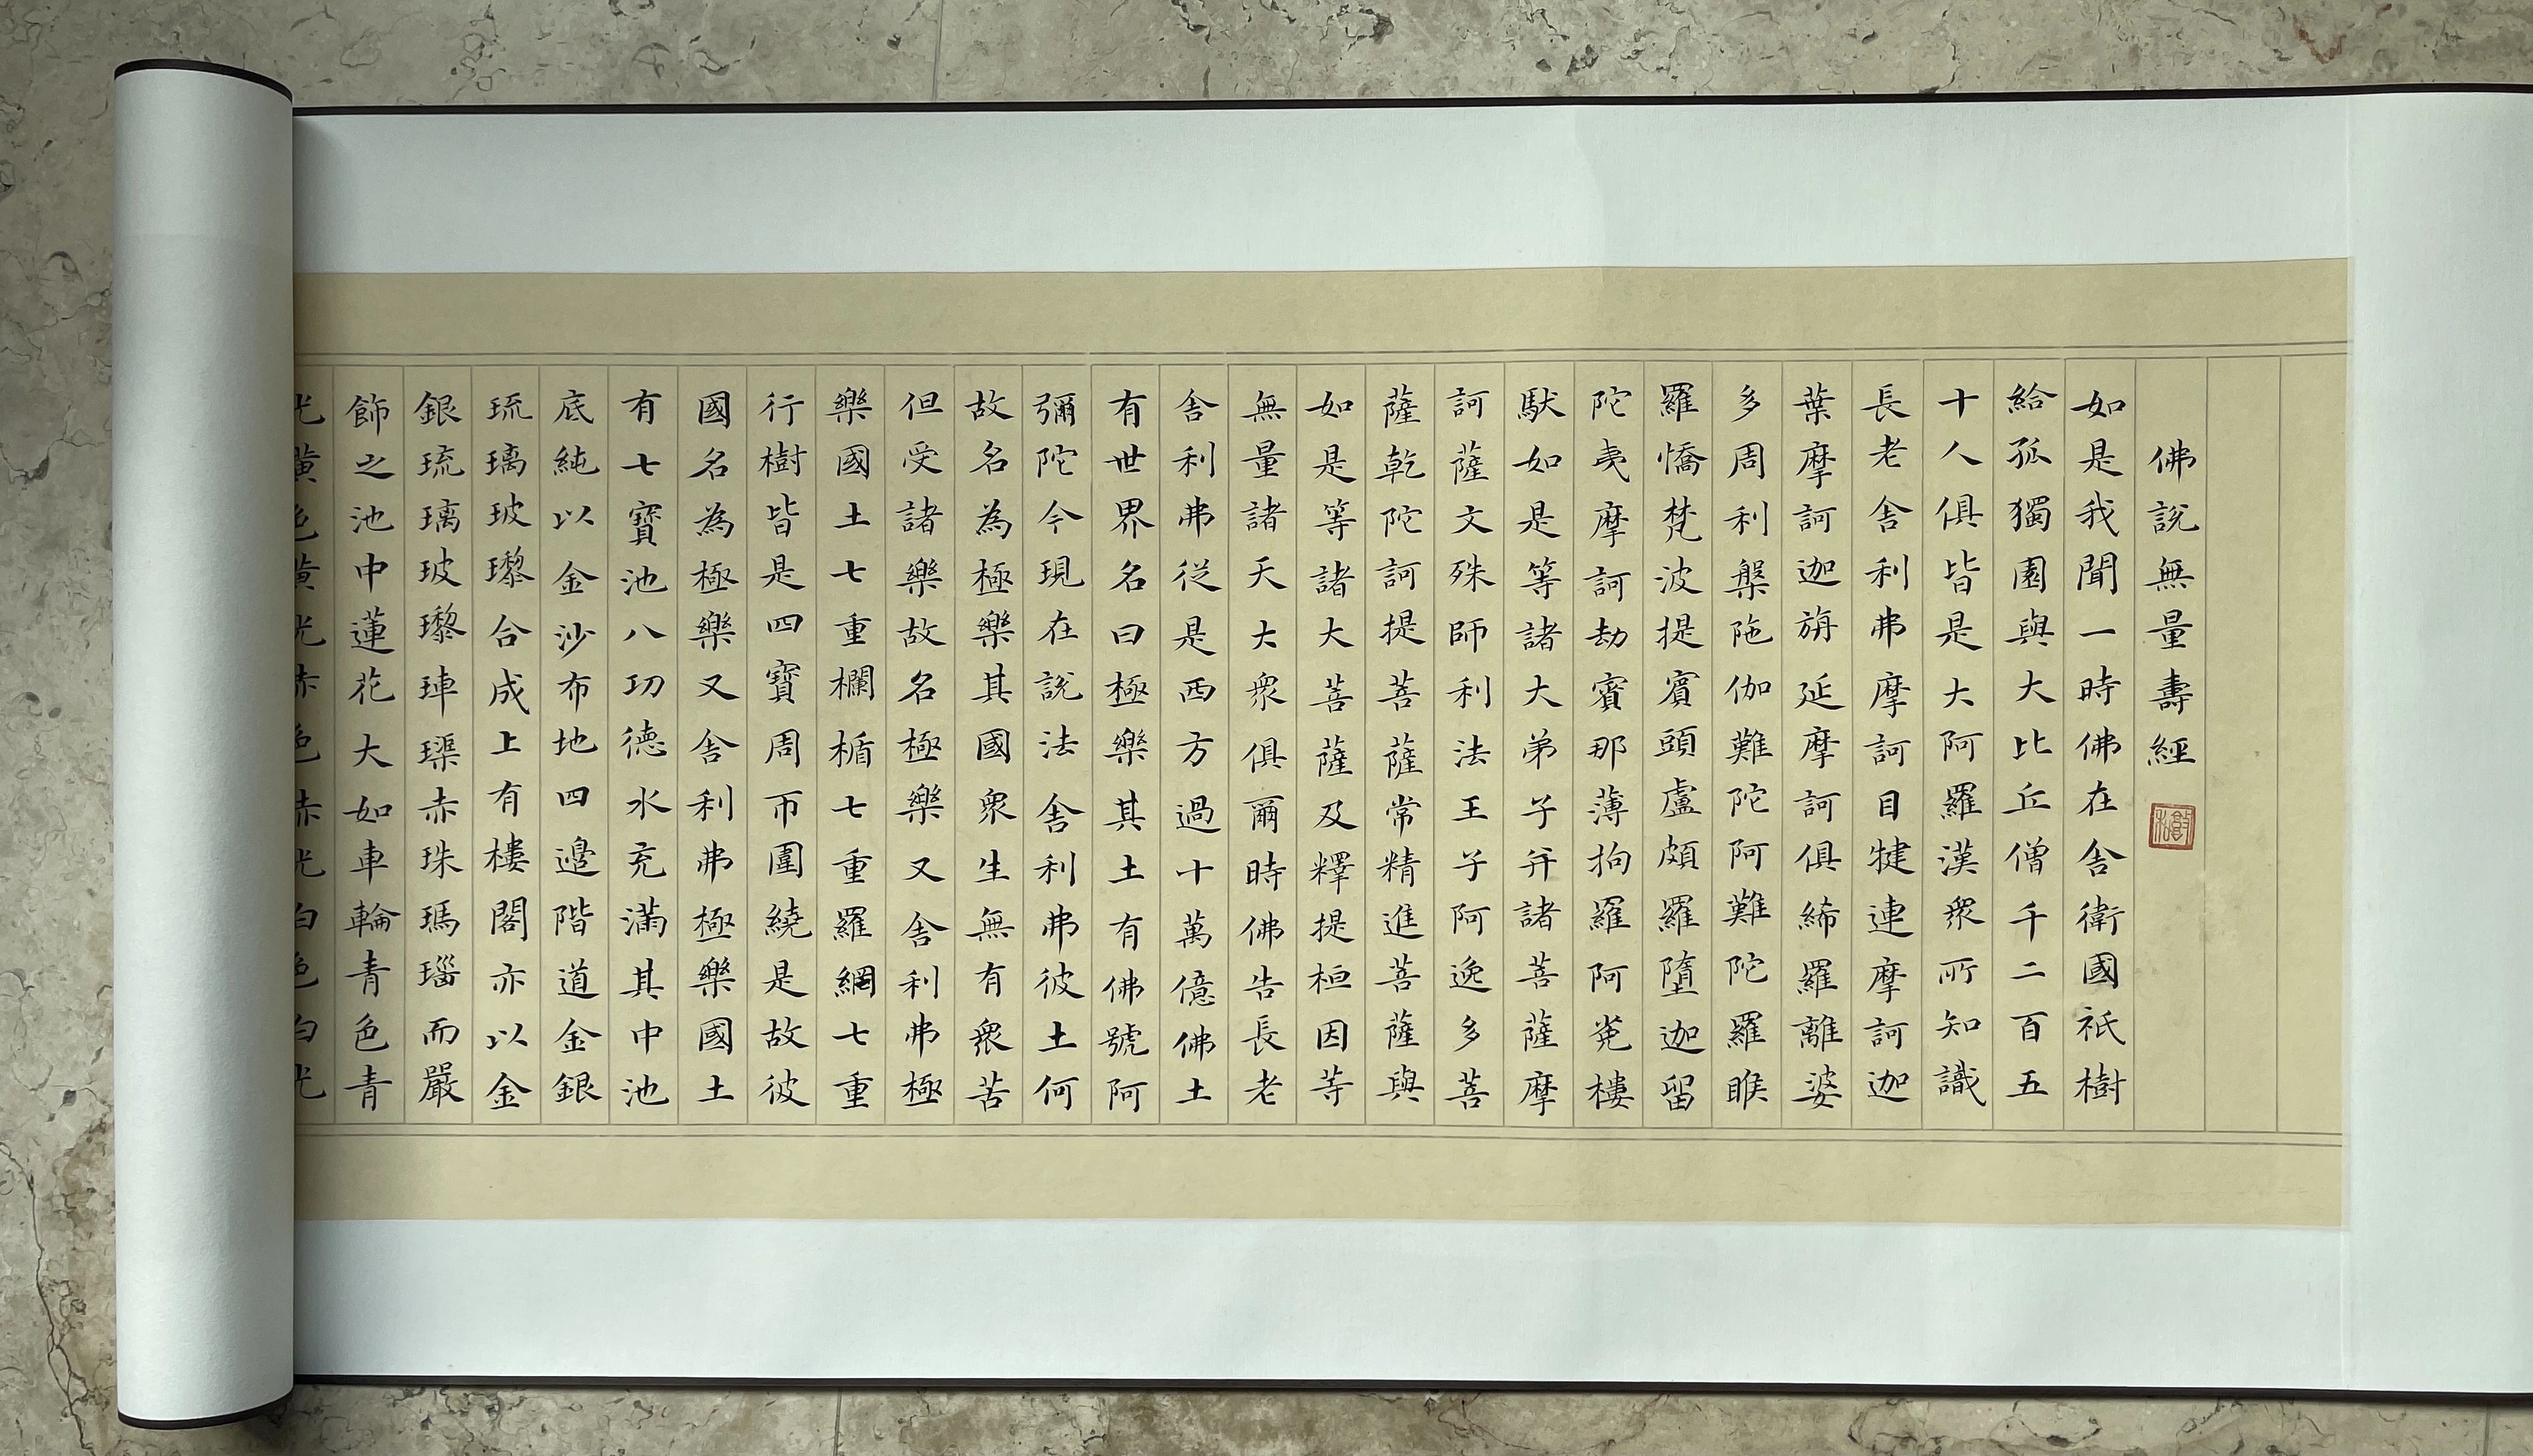 佛說無量壽經
如是我聞一時佛在舍衛國祇樹
給孤獨園與大比丘僧千二百五
十人俱皆是大阿羅漢衆所知識
長老舍利弗摩訶目犍連摩訶迦
葉摩訶迦旃延摩訶俱絺羅離婆
多周利槃陁伽難陀阿難陀羅睺
羅憍梵波提賓頭盧頗羅墮迦留
陀夷摩訶劫賓那薄拘羅阿㝹樓
馱如是等諸大弟子并諸菩薩摩
訶薩文殊師利法王子阿逸多菩
薩乾陀訶提菩薩常精進菩薩與
如是等諸大菩薩及釋提桓因等
無量諸天大衆俱爾時佛告長老
舍利弗從是西方過十萬億佛土
有世界名曰極樂其土有佛號阿
彌陀今現在說法舍利弗彼土何
故名為極樂其國衆生無有衆苦
但受諸樂故名極樂又舍利弗極
樂國土七重欄楯七重羅網七重
行樹皆是四寶周帀圍繞是故彼
國名為極樂又舍利弗極樂國土
有七寶池八功德水充滿其中池
底純以金沙布地四邊階道金銀
琉璃玻瓈合成上有樓閣亦以金
銀琉璃玻瓈硨磲赤珠瑪瑙而嚴
飾之池中蓮花大如車輪青色青
光黃色黃光赤色赤光白色白光